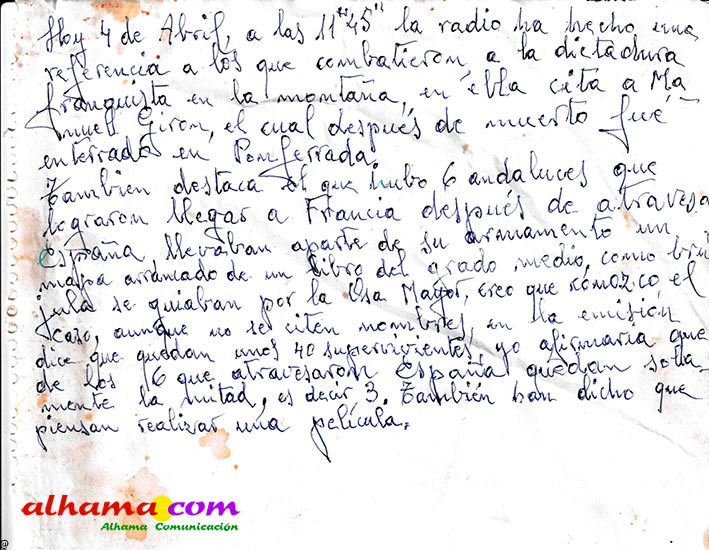 Hoy 4 de Abril, a las 11"45" la radio ha hecho una
referencia a los que combatieron a la dictadura
franquista en la montaña, en ella cita a Ma
nuel Giron, el cual después de muerto fué
enterrado en Ponferrada.
Tambien destaca el que hubo 6 andaluces que
lograron llegar a Francia después de atravesa
España, llevaban aparte de su armamento un
mapa arrancado de un libro del grado medio, como brú
jula se guiaban por la Osa Mayor, creo que conozco el
caso, aunque no se citen nombres, en la emisión
dice que quedan unos 40 supervivientes, yo afirmaria que
de los 6 que atravesaron España quedan sola
mente la mitad, es decir 3. También han dicho que
piensan realizar una película.
alhama.com
Alhama Comunicación